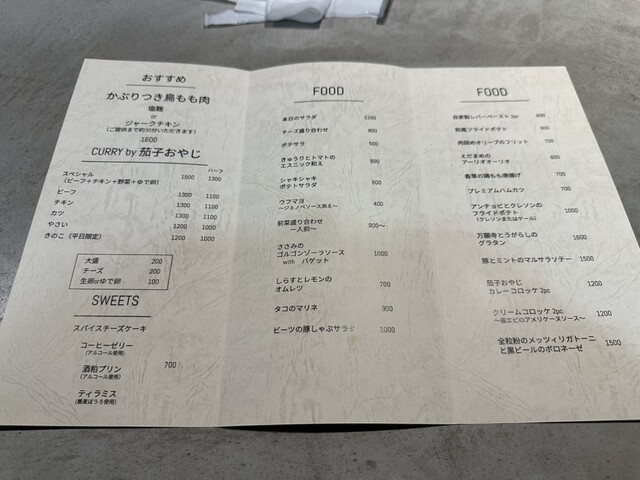 おすすめ
かぶりつき鳥もも肉
塩麹
or
ジャークチキン
(ご提供まで約30分いただきます)
1600
CURRY by 茄子おやじ
ハーフ
スペシャル 1500 1300
(ビーフ+チキン+野菜+ゆで卵)
ビーフ 1300 1100
チキン 1300 1100
カツ 1300 1100
やさい 1200 1000
きのこ (平日限定) 1200 1000
大盛 200
チーズ 200
生卵orゆで卵 100
SWEETS
スパイスチーズケーキ
コーヒーゼリー
(アルコール使用)
700
酒粕プリン
(アルコール使用)
ティラミス
(蕎麦ぼうろ使用)
FOOD
本日のサラダ
チーズ盛り合わせ 900
ポテサラ 600
きゅうりとトマトの
エスニック和え
シャキシャキ
ポテトサラダ 600
ウフマヨ 400
～ジェノベソース添え～
前菜盛り合わせ 900～
一人前～
ささみの
ゴルゴンゾーラソース 1000
with バゲット
しらすとレモンの
オムレツ 700
タコのマリネ 900
ビーツの豚しゃぶサラダ 1000
FOOD
自家製レバーペースト 2pc 600
和風フライドポテト
肉詰めオリーブのフリット 700
えだまめの
アーリオオーリオ
香草の鶏もも唐揚げ 700
プレミアムハムカツ 700
アンチョビとクレソンの
フライドポテト 1000
(クレソンまたはケール)
万願寺とうがらしの
グラタン 1600
豚とミントのマルサラソテー 1500
茄子おやじ
カレーコロッケ 2pc 1200
クリームコロッケ 2pc 1200
～桜エビロアメリケーヌソース～
全粒粉のメッツィリガトーニ
と黒ビールのボロネーゼ 1500